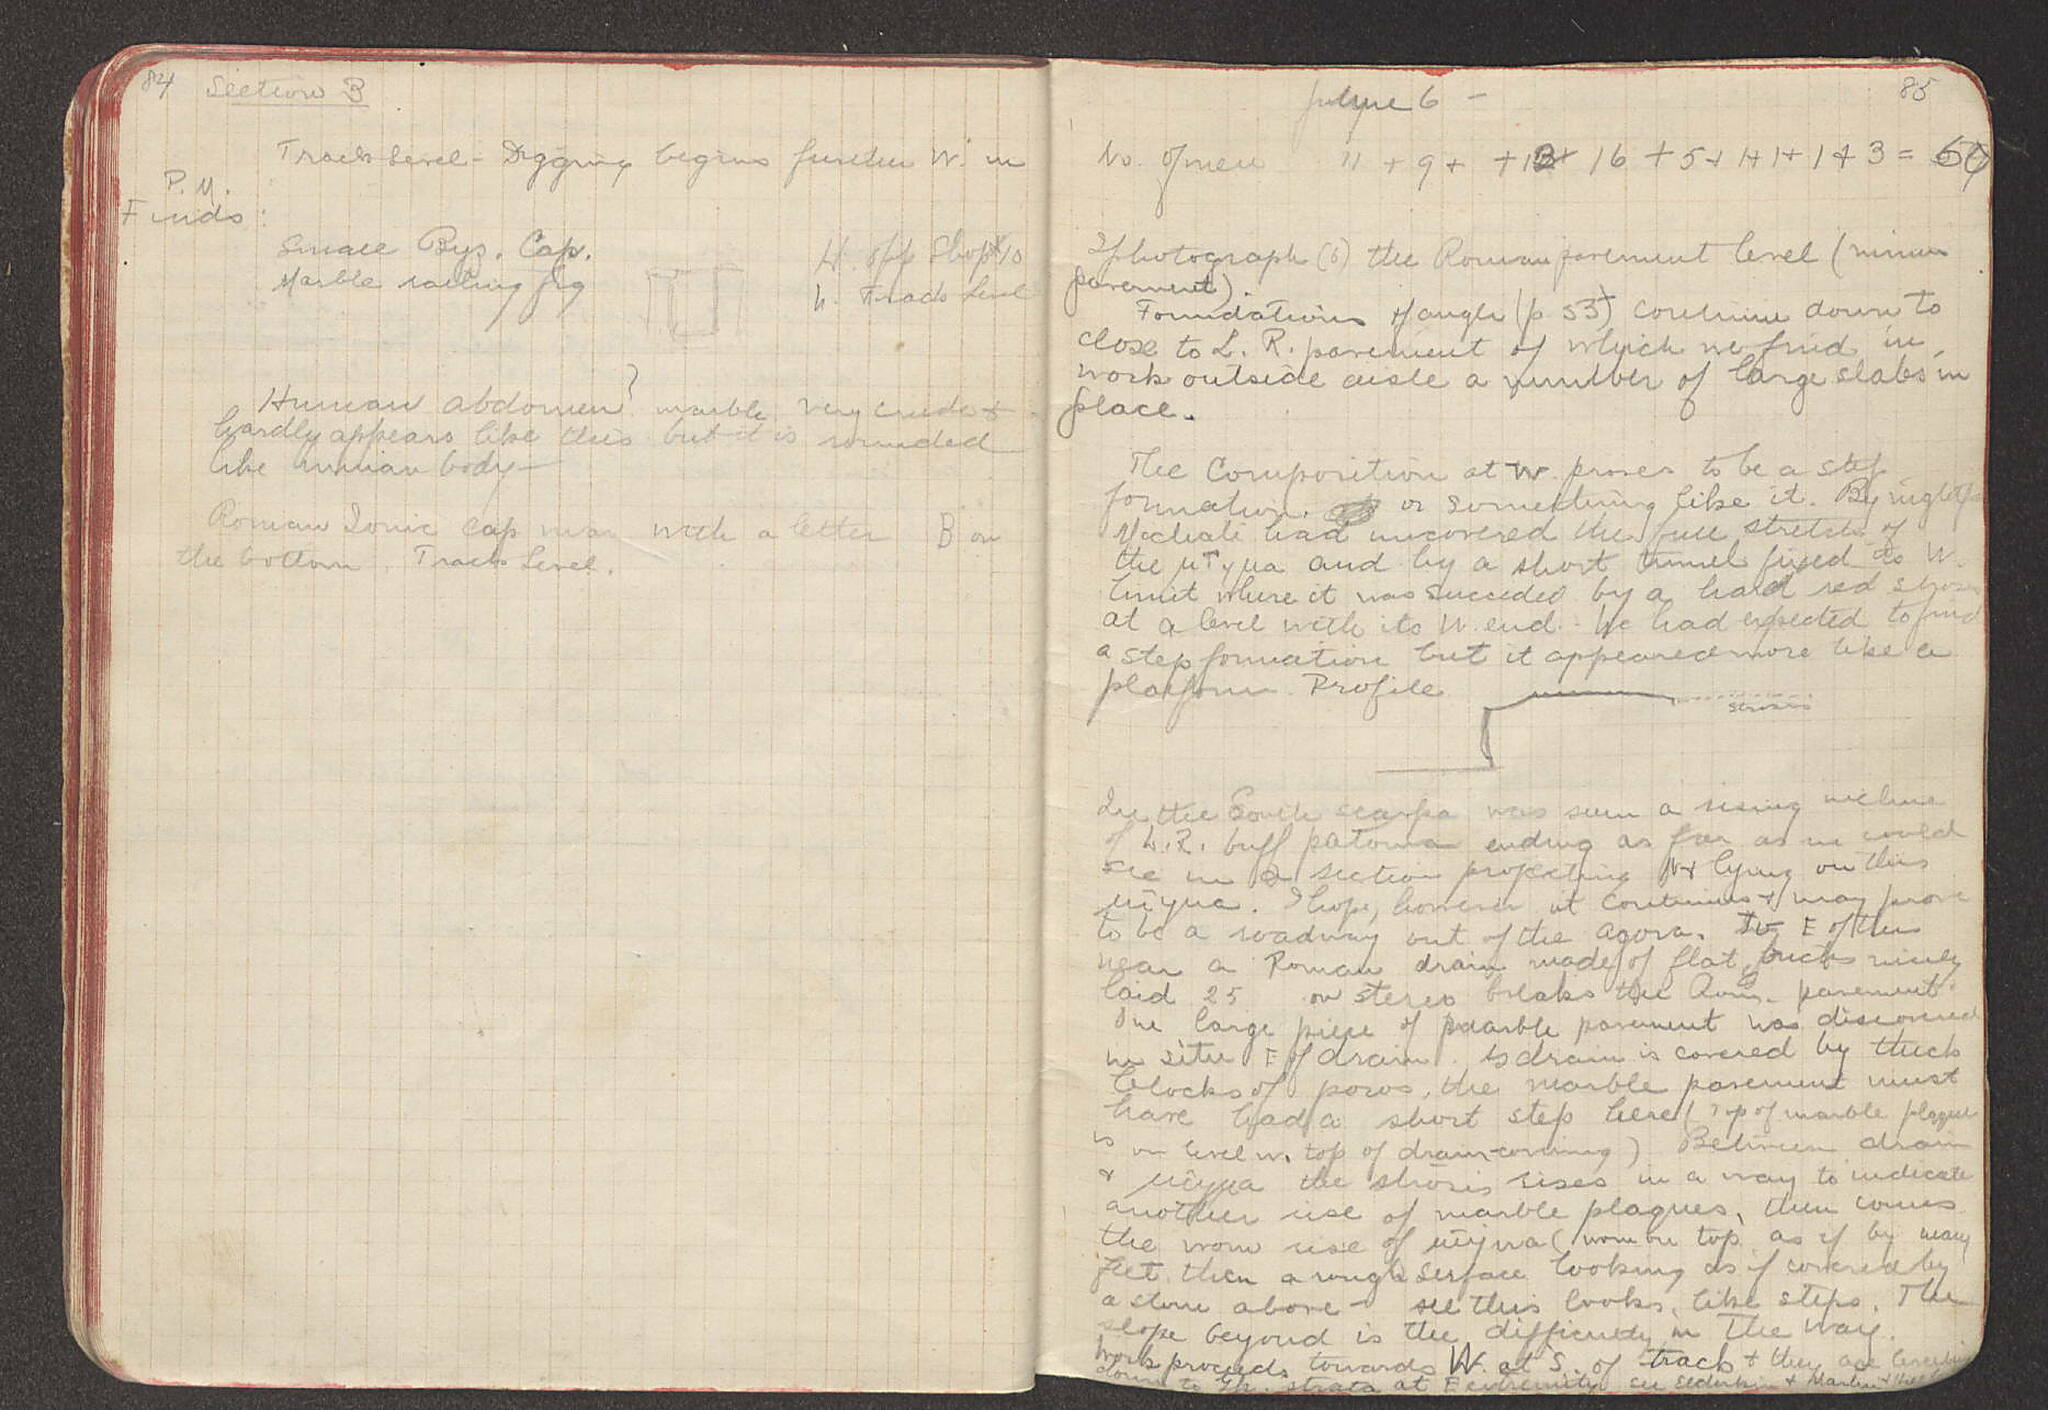 84 Section B
Track Level - Digging begins further W. in
P.M.
Finds:
Small Byz. Cap. H. opp Shop 10
Marble railing frg W. Track Level
Human abdomen? marble, very crude &
hardly appears like this but it is rounded
like human body—
Roman Ionic cap with a letter B on
the bottom. Track Level.
85
June 6 —
No. of men 11 + 9 + + 12 + 16 + 5 + 1 + 1 + 1 + 3 =
I photograph (6) the Roman pavement level (minus
pavement).
Foundations of angle (p 53) continue down to
close to L. R. pavement of which we find in
work outside aisle a number of large slabs in
place.
The Composition at W. proves to be a step
formation. or something like it. By night
had uncovered the full stretch of
the μῖγμα and by a short tunnel fixed its W.
limit where it was succeeded by a hard red
at a level with its W. end. We had expected to find
a step formation but it appeared more like a
platform. Profile
strosis
In the South scarpa was seen a rising incline
of L.R. buff patoma ending as far as we could
see in a section projecting N & lying on this
μῖγμα. I hope, however it continues & may prove
to be a roadway out of the agora. To E of this
near a Roman drain made of flat bricks nicely
laid 25 on stereo breaks the Rom. pavement.
One large piece of marble pavement was discovered
in situ E of drain. As drain is covered by thick
blocks of poros, the marble pavement must
have had a short step here (Top of marble plaque
is on level w. top of drain-covering) Between drain
& μῖγμα the strosis rises in a way to indicate
another rise of marble plaques, then comes
the worn rise of μῖγμα (worn on top as if by many
feet, then a rough surface looking as if covered by
a stone above — all this looks like steps. The
slope beyond is the difficulty in the way.
Work proceeds towards W. at S. of track & they are
down to Gk. strata at E extremity. see